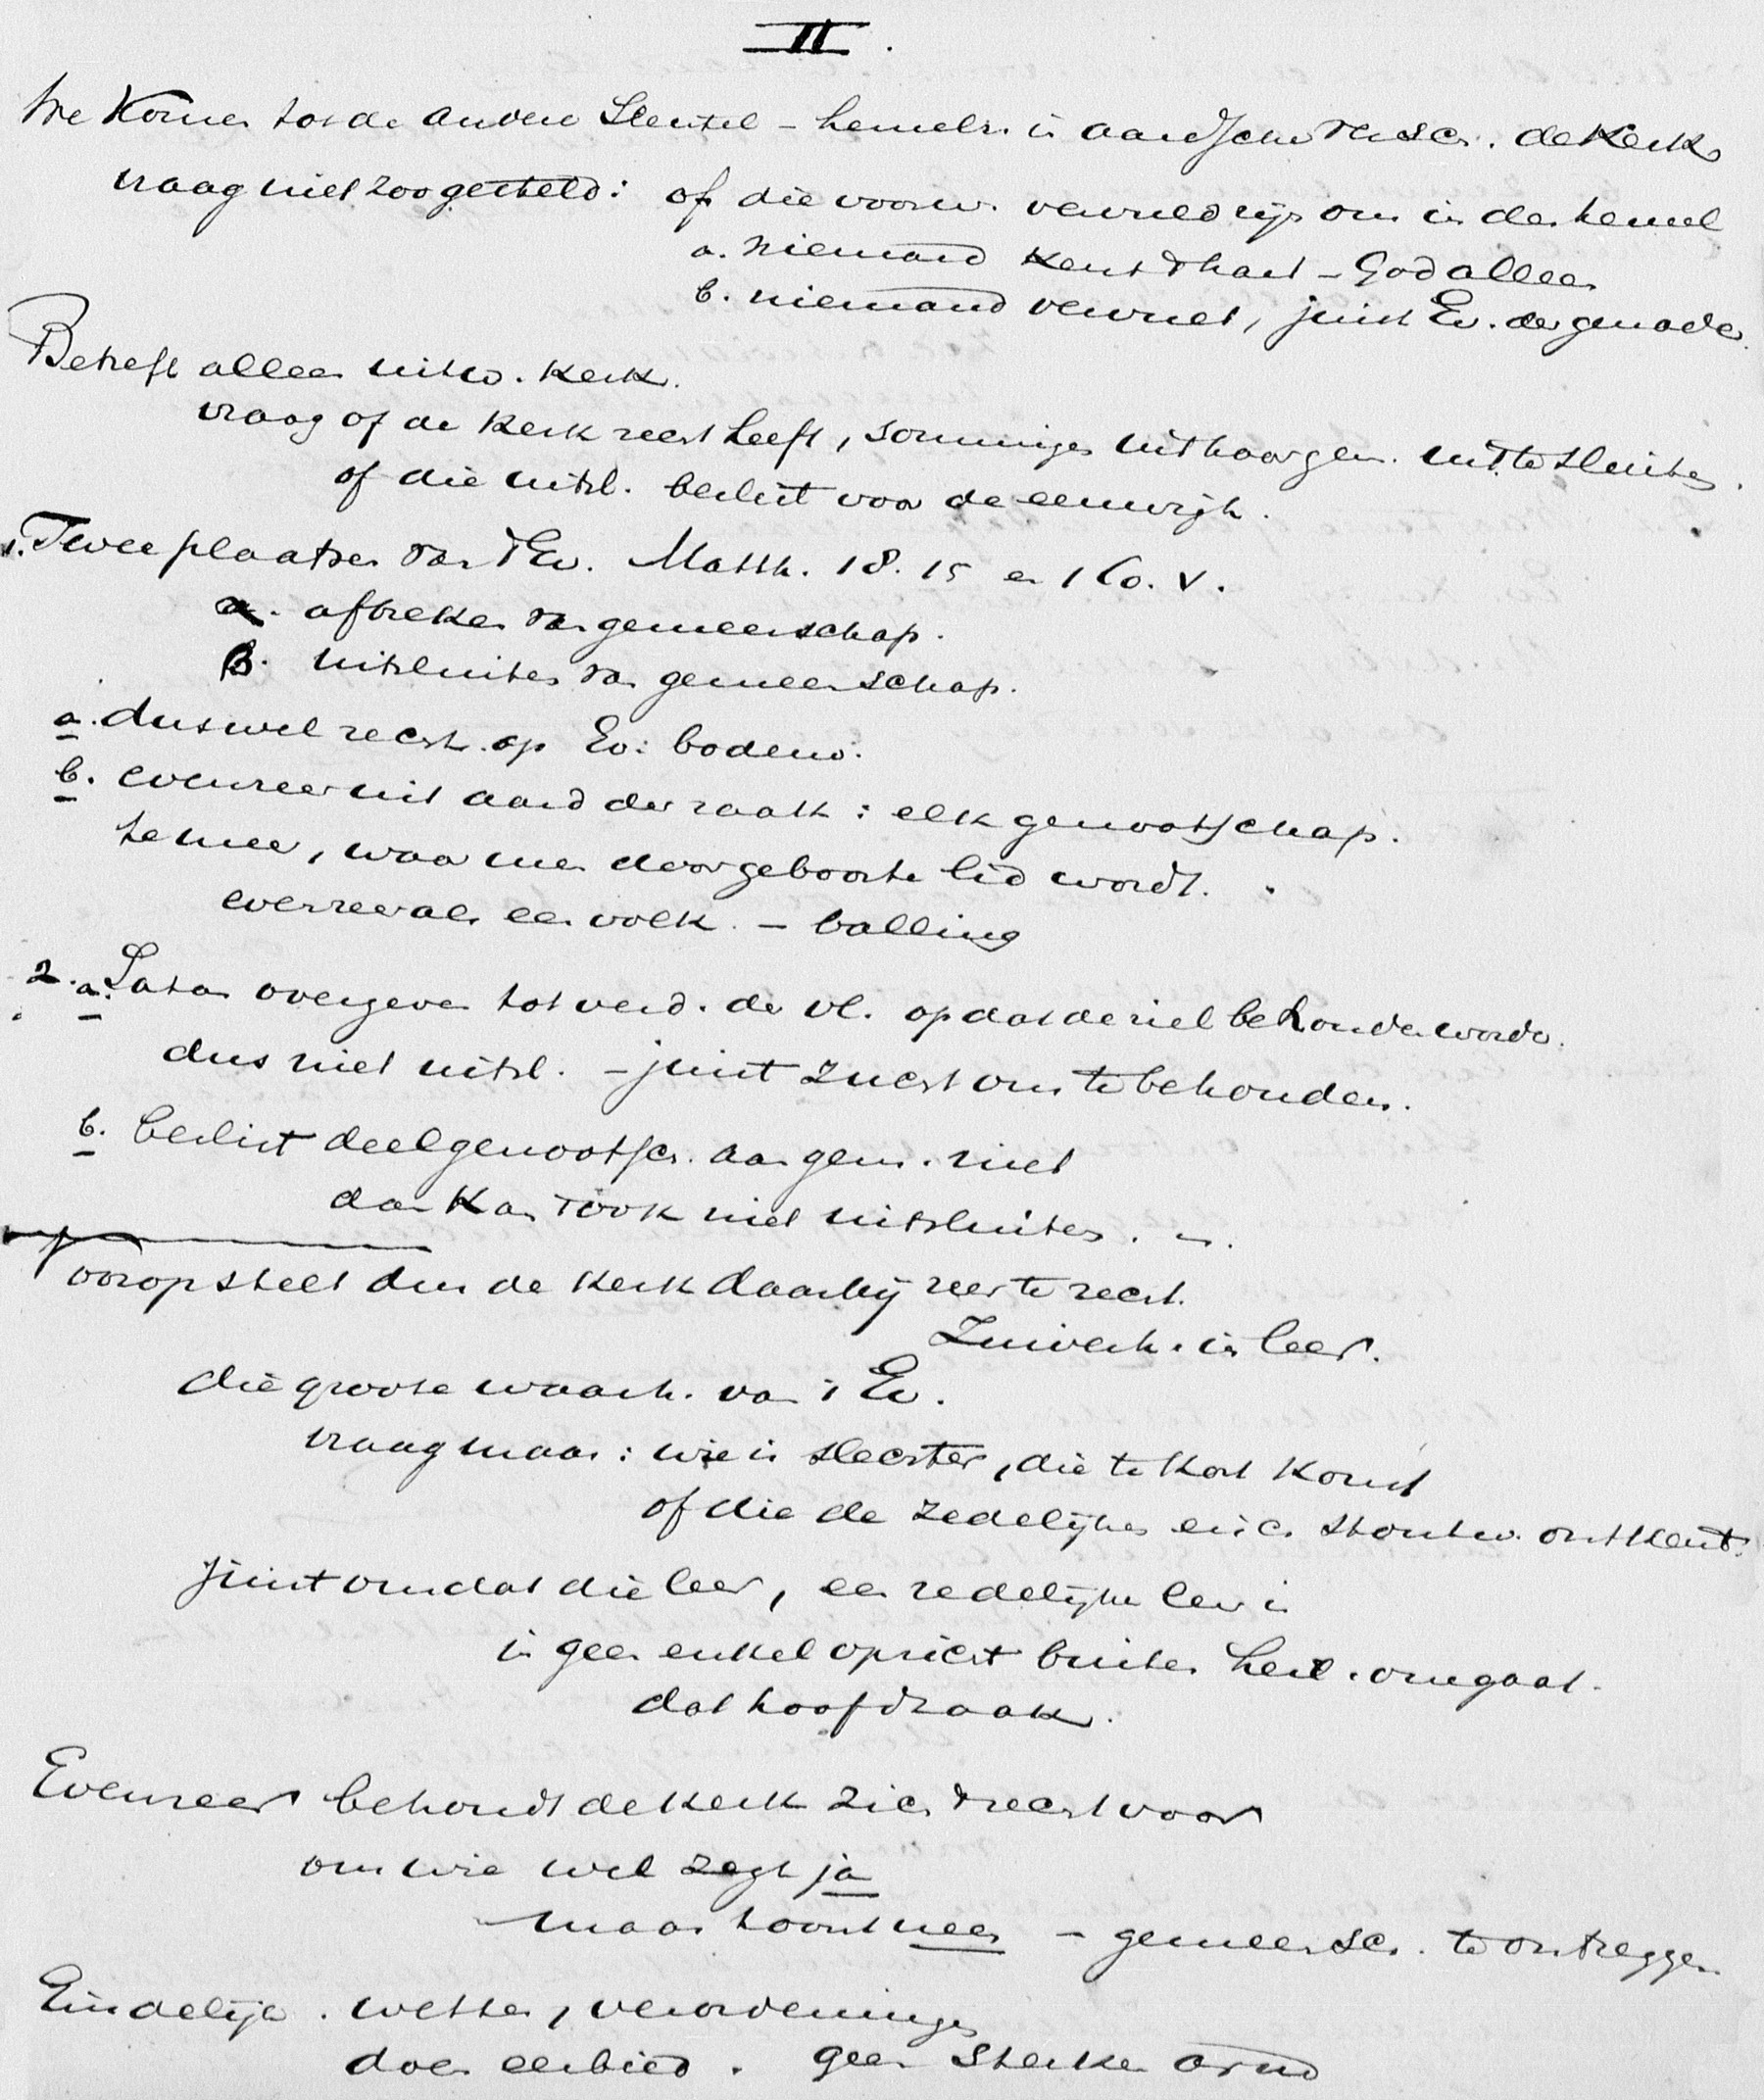 II.
We komen tot de andere Sleutel – hemelr. in aardsche rensch. de Kerk
vraag niet zoo gesteld: of die voorw. vervuld zijn om in den hemel
a. niemand kent 't hart – God alleen
b. niemand vervult, juist Ev. der genade.
Betreft alleen uitw. Kerk.
vraag of de Kerk recht heeft, sommigen uit haar gem. uit te sluiten.
of die uitsl. beslist voor de eeuwigh.
1. Twee plaatsen van 't Ev. Matth. 18.15 en 1 Co. V.
α. afbreken van gemeenschap.
β. uitsluiten van gemeenschap.
a. dus wel recht op Ev. bodem.
b. evenzeer uit aard der zaak: elk genootschap.
te meer, waar men door geboorte lid wordt.
evenzeer als een volk. – balling
2. a. Satan overgeven tot verd. des vl. opdat de ziel behouden worde.
dus niet uitsl. – juist zucht om te behouden.
b. beslist deelgenootsch. aan gem. niet
dan kan 't ook niet uitsluiten.
voorop stelt dus de Kerk daarbij zeer te recht.
Zuiverh. in leer.
die groote waarh. van 't Ev.
vraag maar: wie is slechter, die te kort komt
of die de zedelijken eisch stoutw. ontkent.
juist omdat die leer, een zedelijke leer is
in geen enkel opzicht buiten heil. omgaat.
dat hoofdzaak.
Evenzeer behoudt de Kerk zich 't recht voor
om wie wel zegt ja
maar toont neen – gemeensch. te ontzeggen
Eindelijk. wetten, verordeningen
doen eerbied. geen sterken